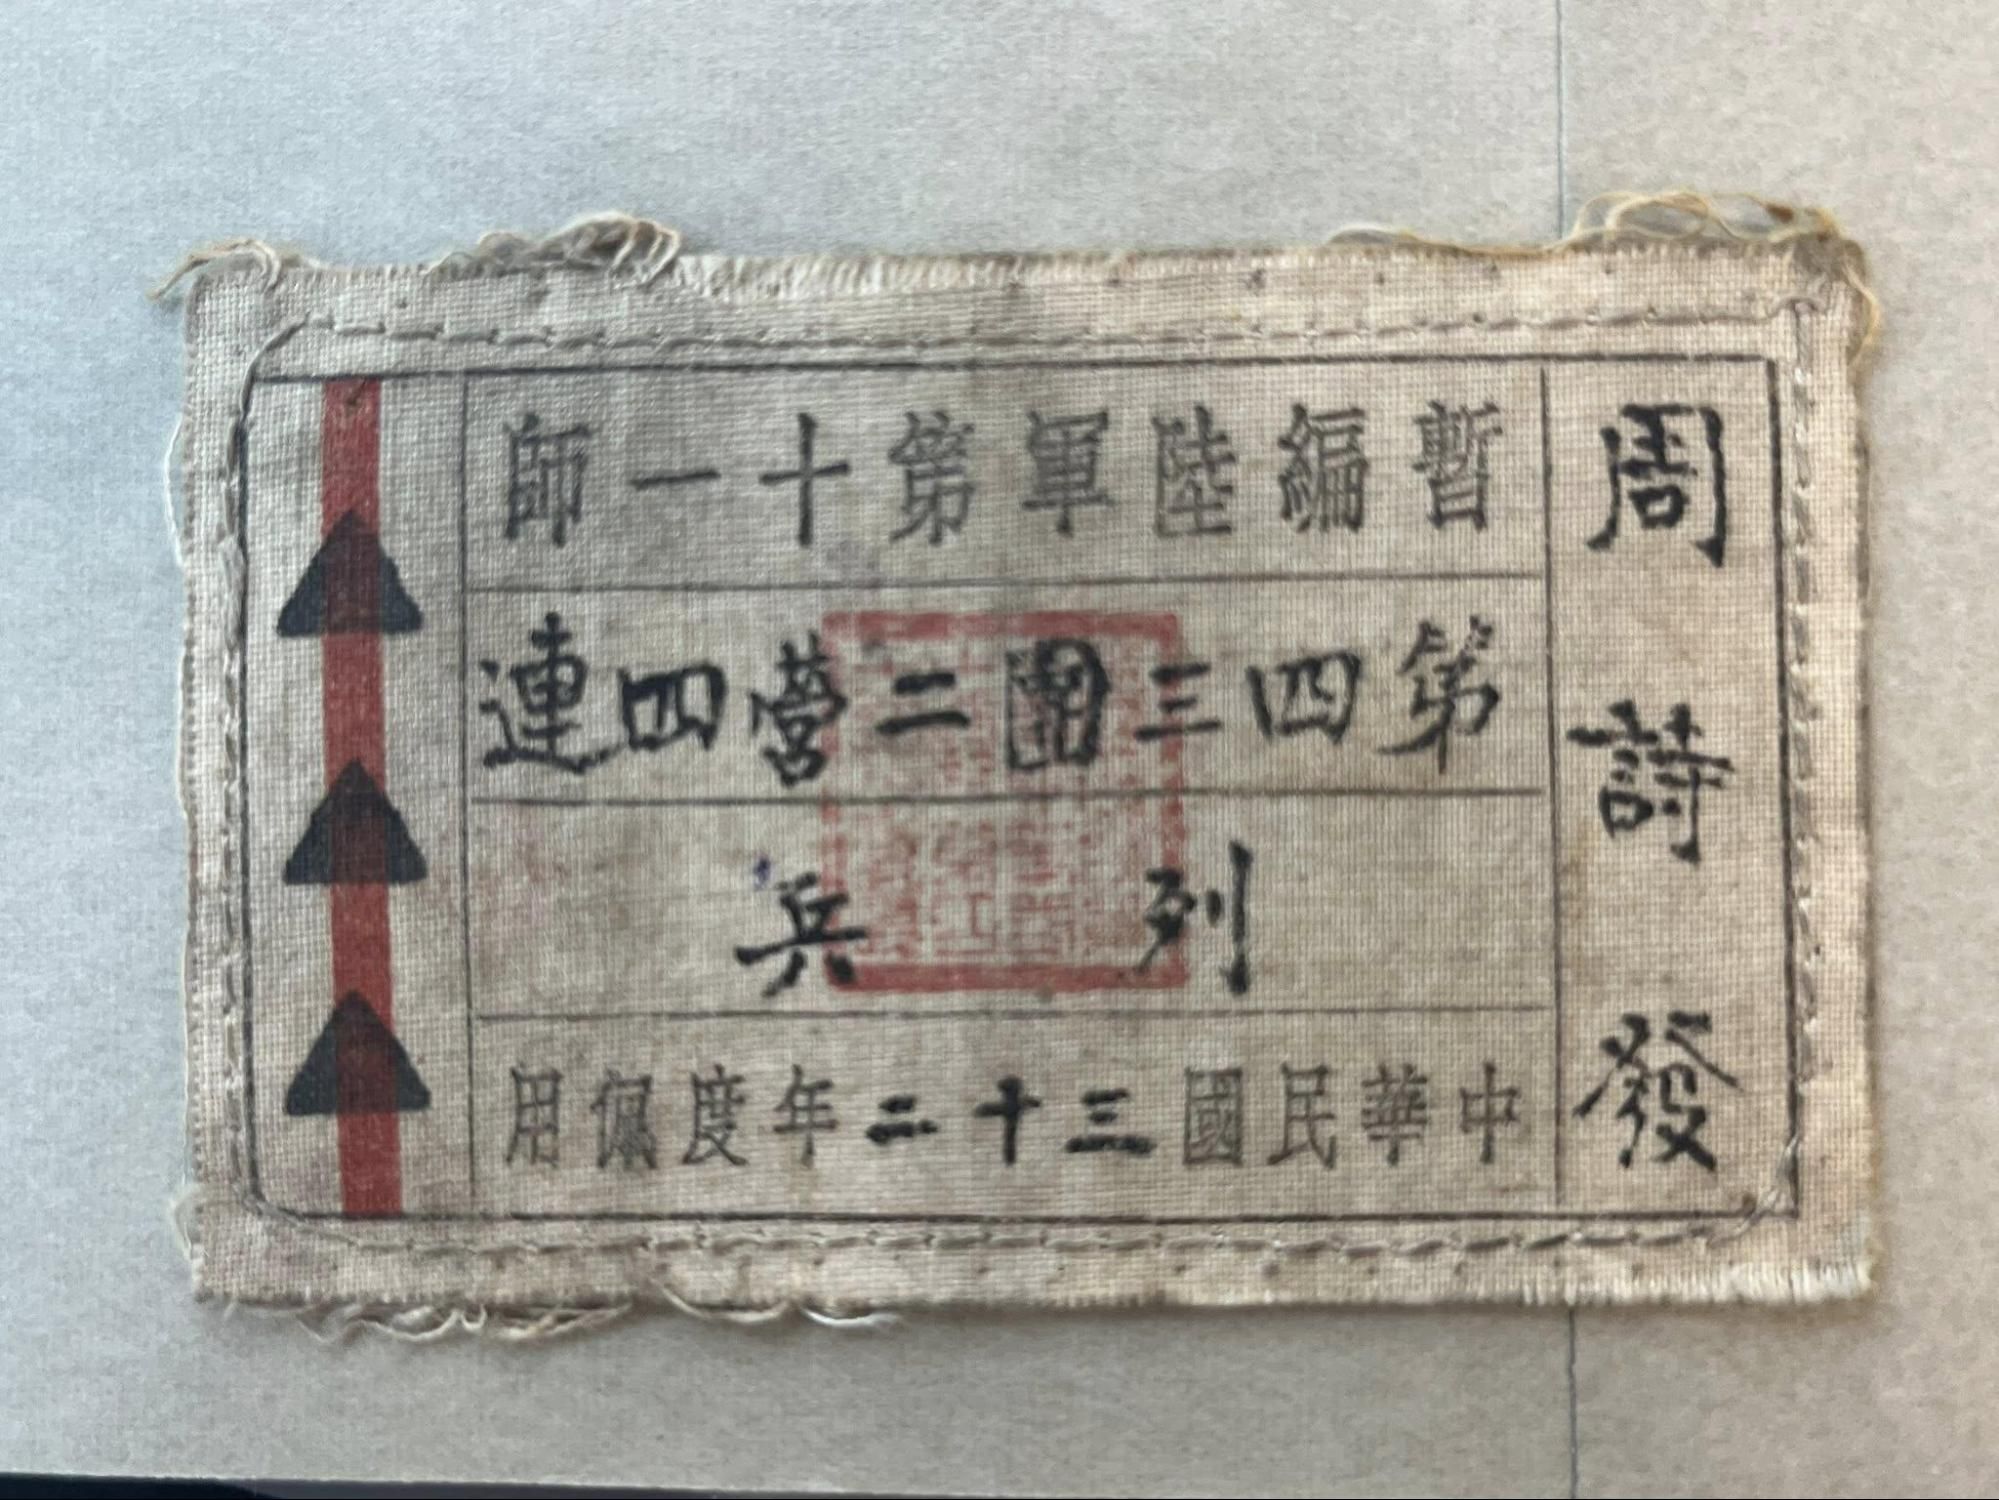 周詩發
暫編陸軍第十一師
第四三團二營四連
列兵
中華民國三十二年度佩用